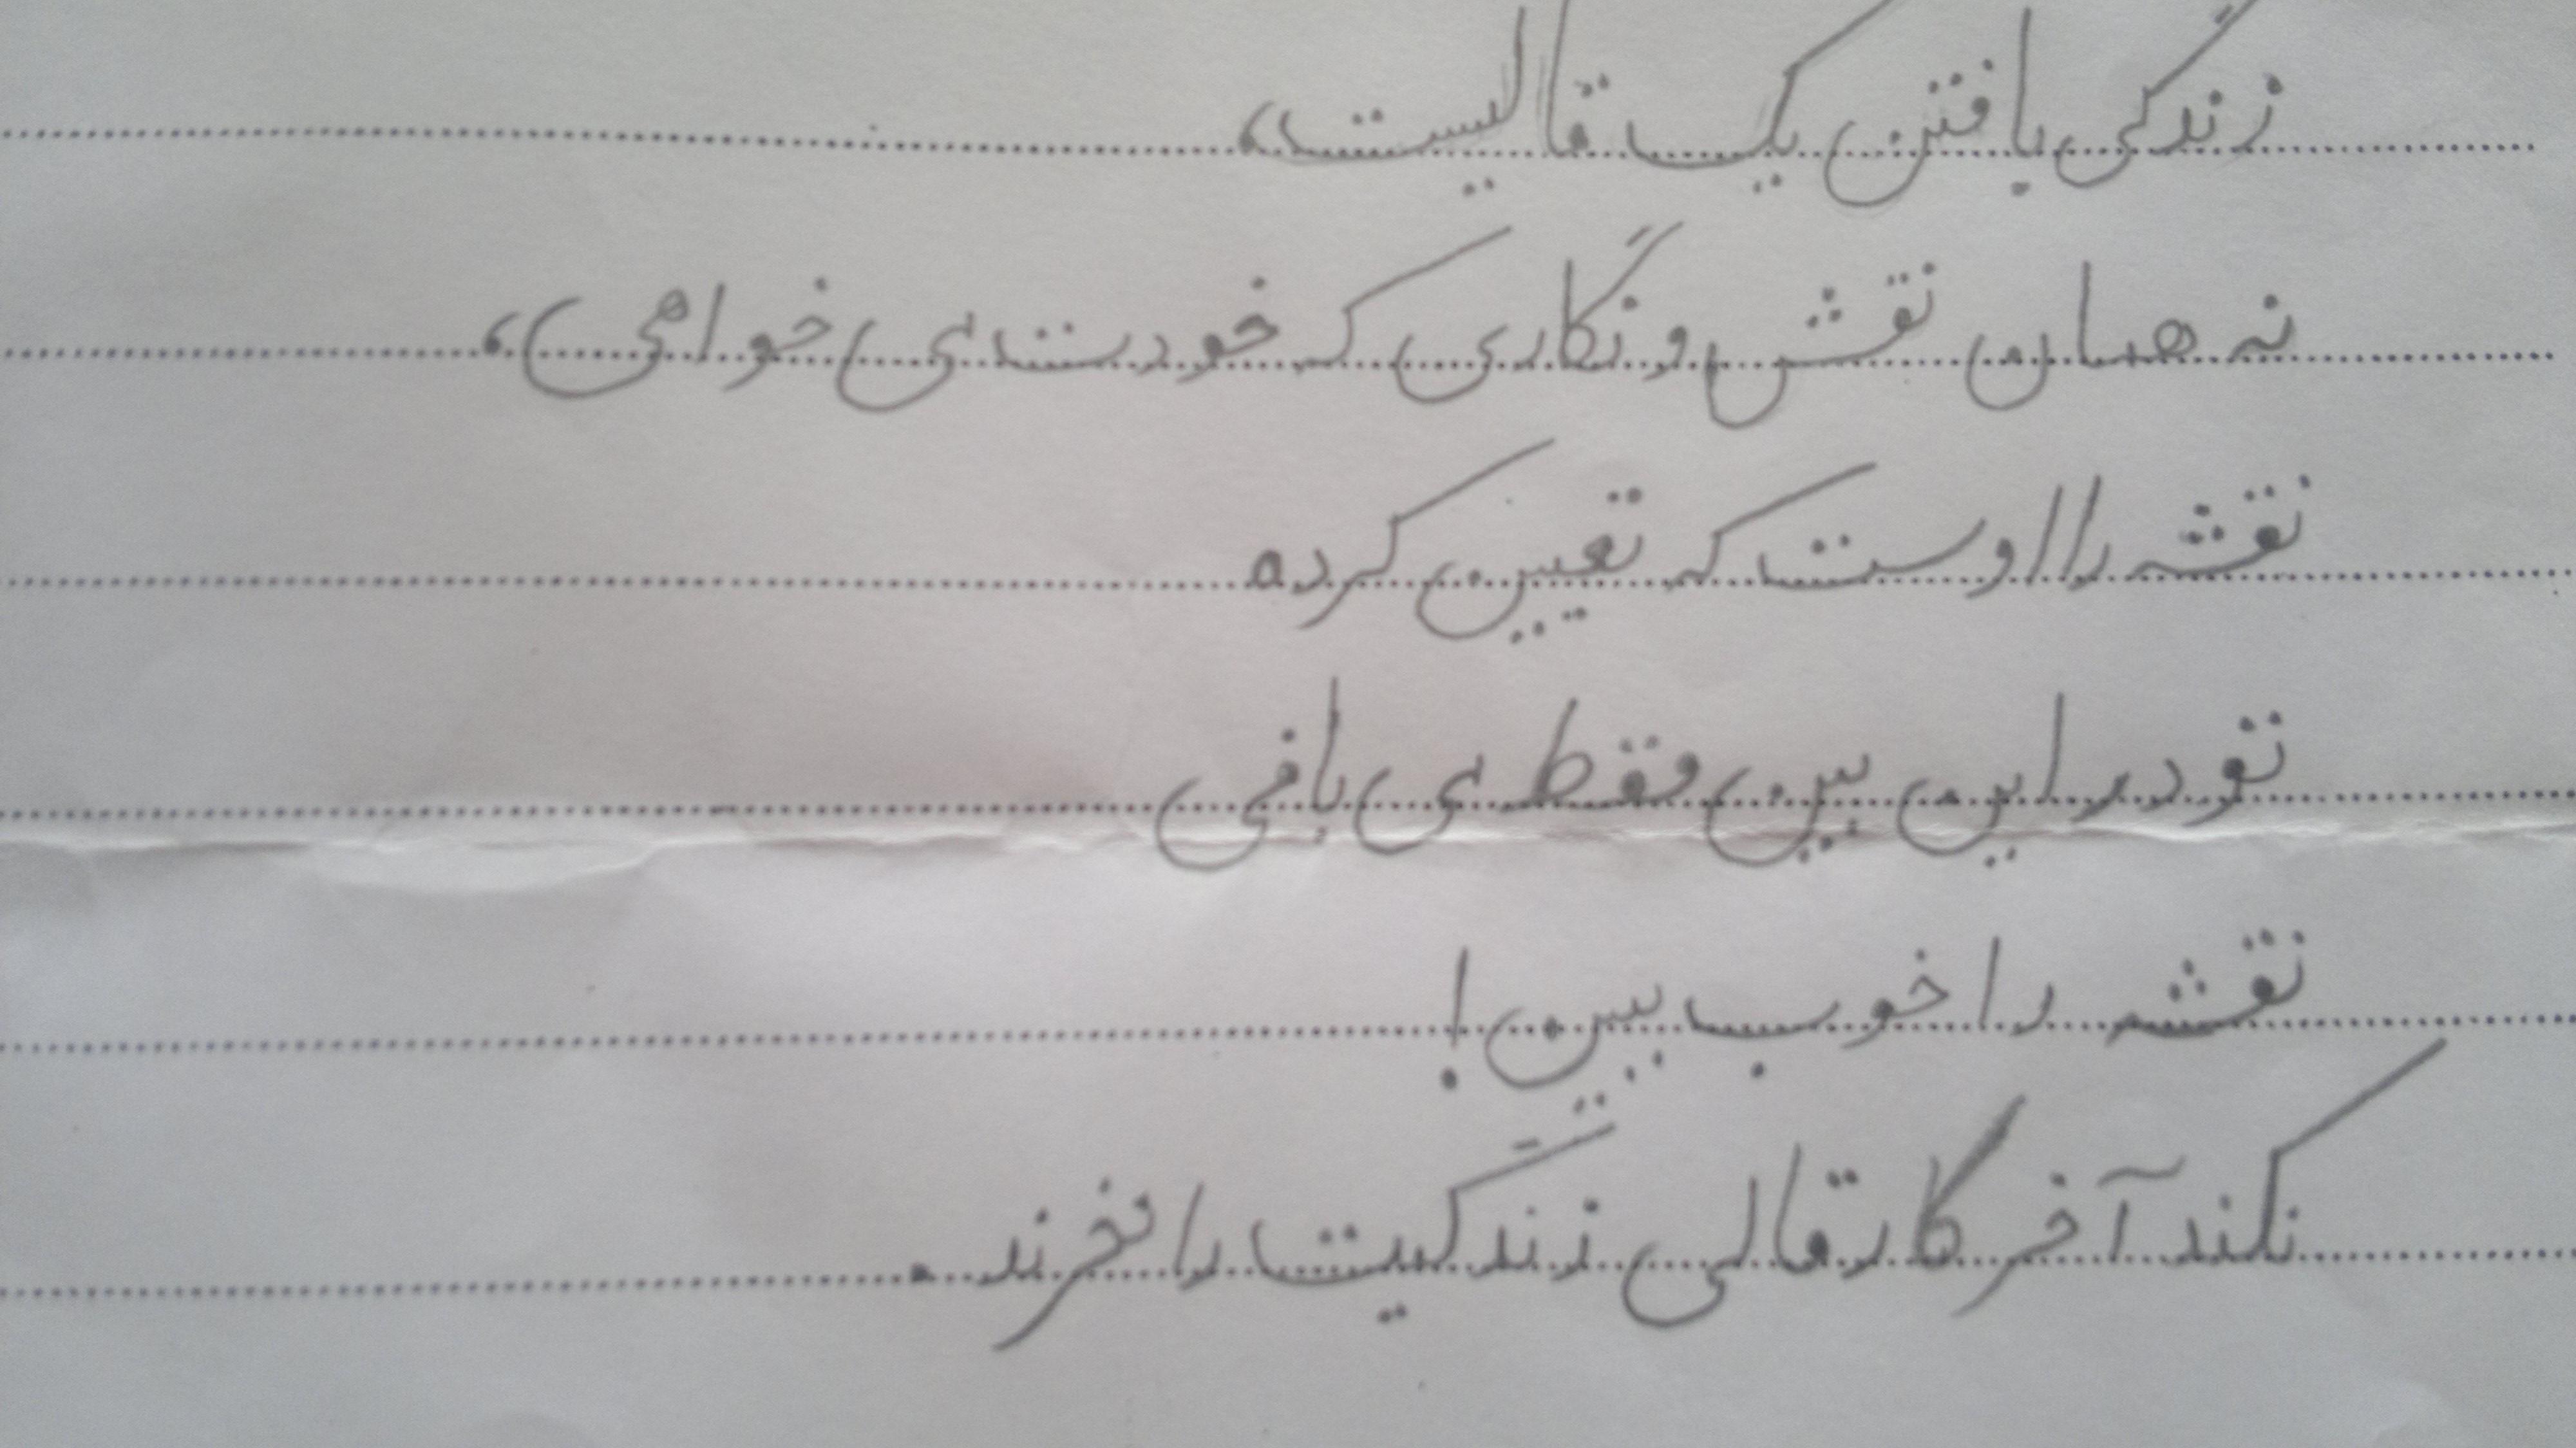 زندگی بافتن یک قالیست،
نه همان نقش و نگاری که خودت می خواهی،
نقشه را اوست که تعیین کرده
تو در این بین فقط می بافی
نقشه را خوب ببین!
نکند آخر کار قالی زندگیت را نخرند.